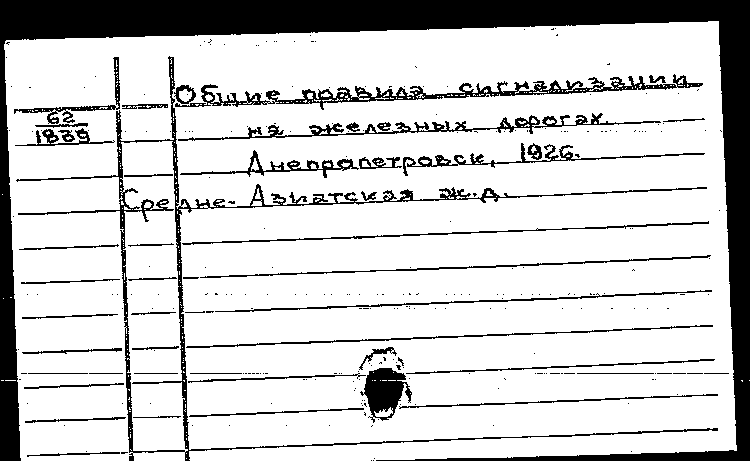 Общие правила сигнализации
62
1839
на железных дорогах.
Днепропетровск, 1926.
Средне-Азиатская ж.д.